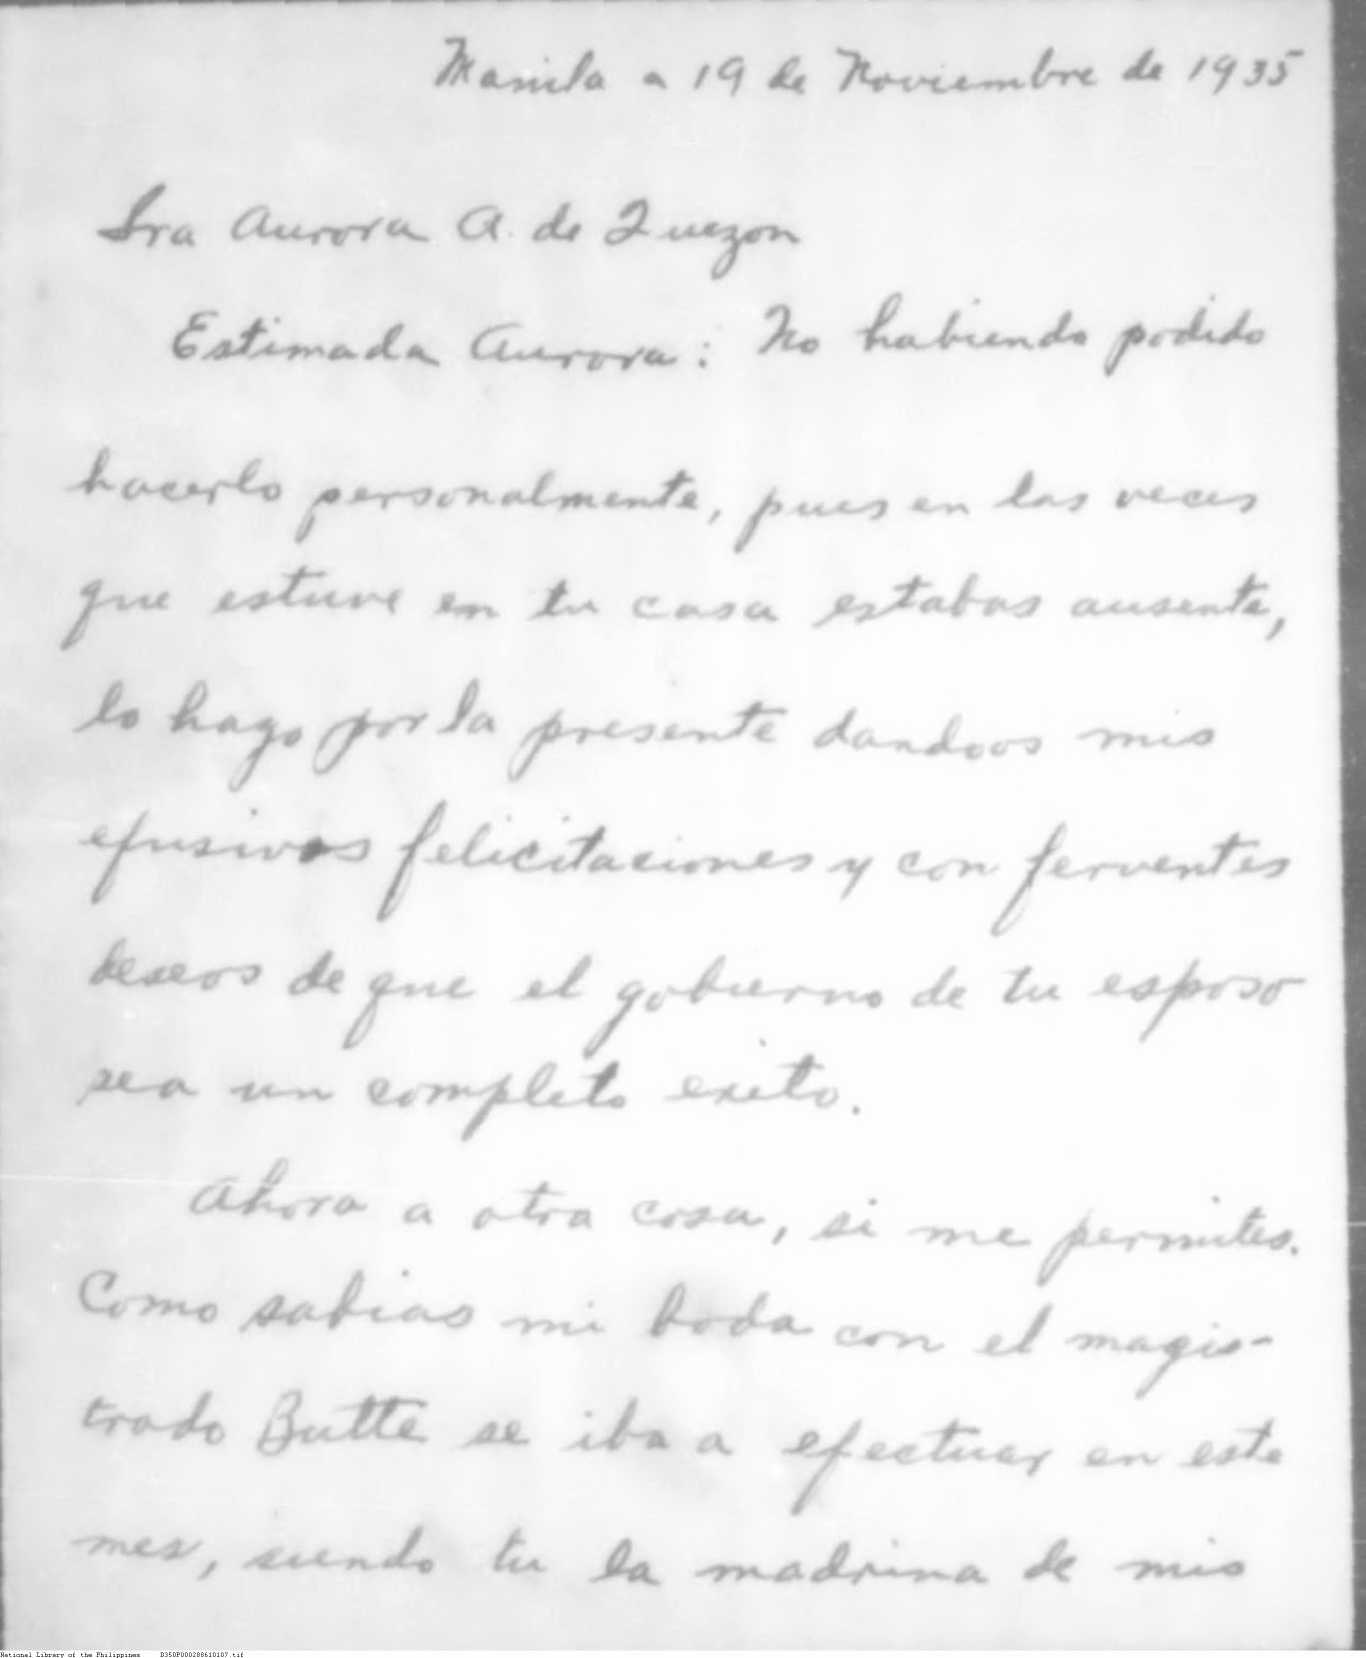 Manila a 19 de Noviembre de 1935
Sra Aurora A. de Quezon
Estimada Aurora: No habiendo podido
hacerlo personalmente, pues en las veces
que estuve en tu casa estabas ausente,
lo hago por la presente dandoos mis
efusivos felicitaciones y con fervientes
deseos de que el gobierno de tu esposo
sea un completo exito.
Ahora a otra cosa, si me permites.
Como sabias mi boda con el magis-
trado Butte se iba a efectuar en este
mes, siendo tu la madrina de mis
National Library of the Philippines D350P000288610107.tif